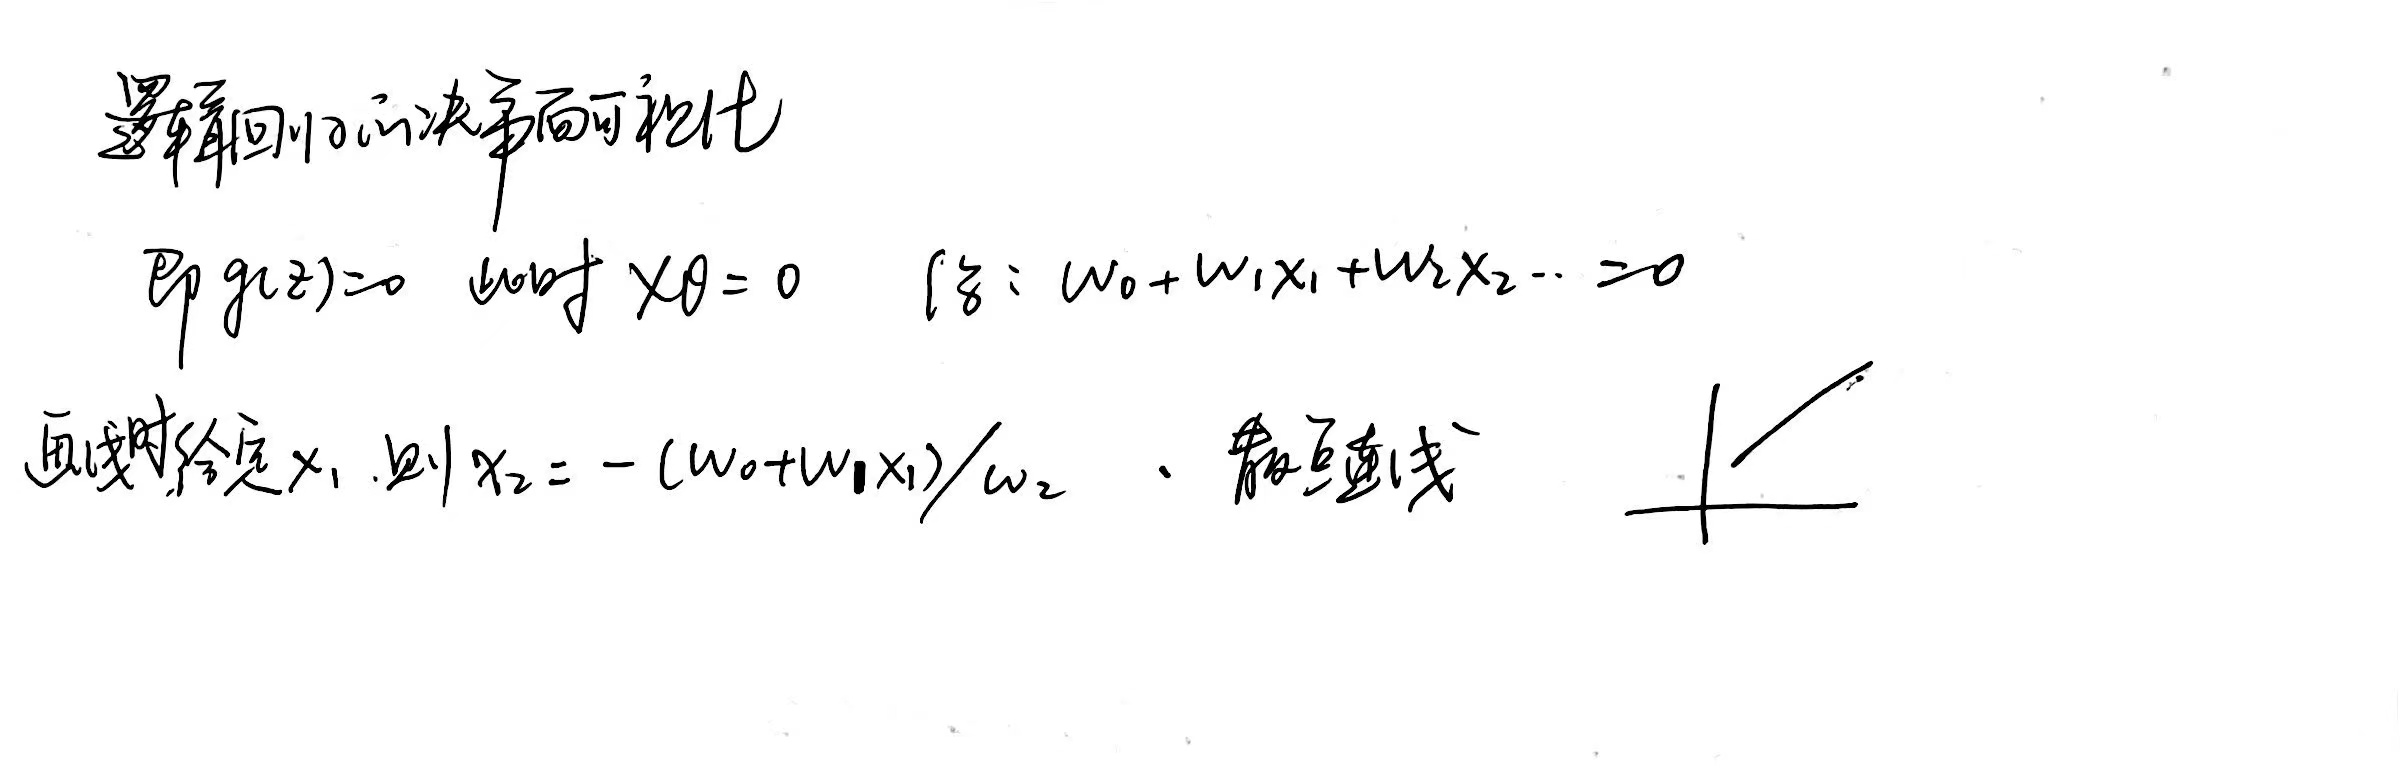 逻辑回归的决策面可视化
即 g(z)=0 此时 Xθ=0 俗: W₀+W₁X₁+W₂X₂··=0
画线时给定 X₁.则 X₂=-(W₀+W₁X₁)/W₂ 、散点连线